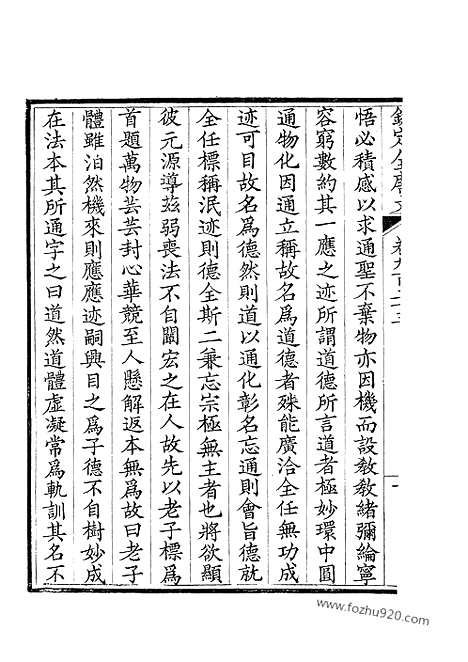 欽定全唐文 卷九百二十三 一
悟必積感以求通聖不棄物亦因機而設教教緒彌綸寧
容窮數約其一應之迹所謂道德所言道者極妙環中圓
通物化因通立稱故名爲道德者殊能廣洽全任無功成
迹可目故名爲德然則道以通化彰名忘通則會旨德就
全任標稱泯迹則德全斯二兼忘宗極無主者也將欲顯
彼元源導茲弱喪法不自闡宏之在人故先以老子標爲
首題萬物芸芸封心華競至人懸解返本無爲故曰老子
體雖泊然機來則應應迹嗣興目之爲子德不自樹妙成
在法本其所通字之曰道然道體虛凝常爲軌訓其名不
www.fozhu920.com